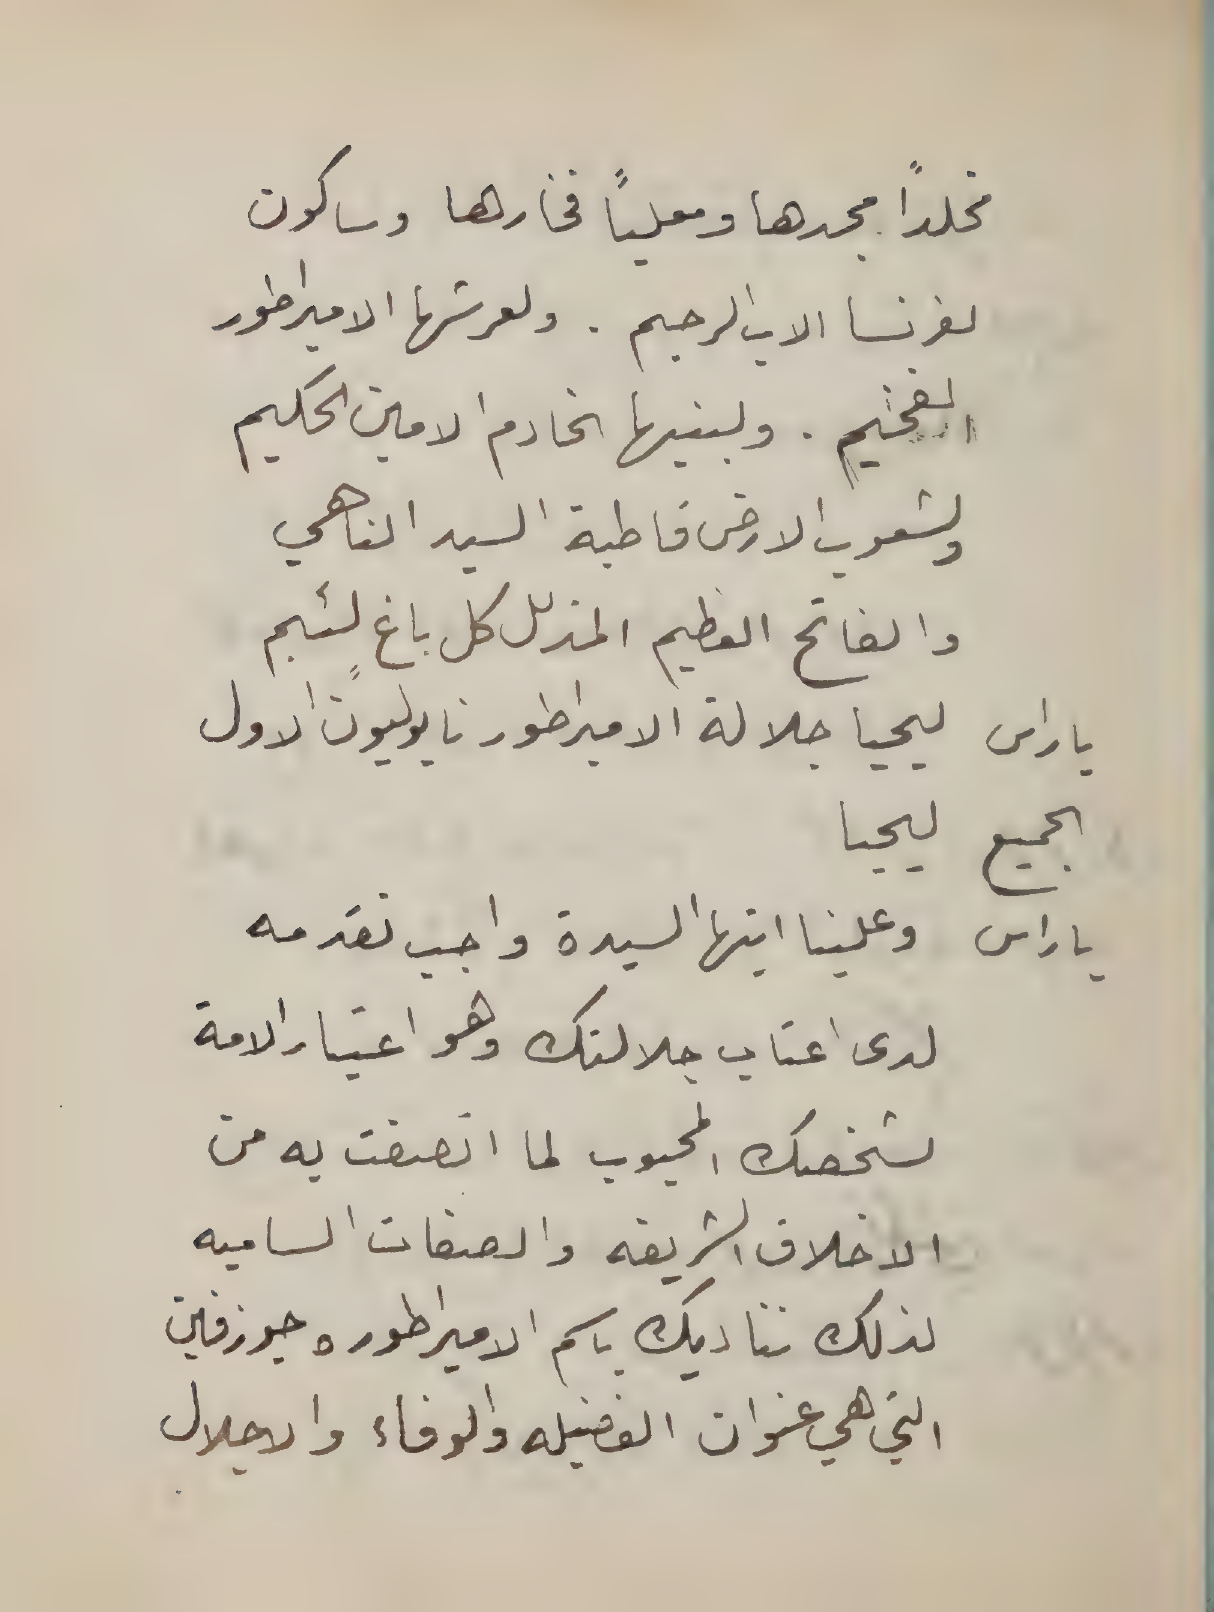 مخلداً مجدها ومعلياً فخارها وساكون
لفرنسا الاب الرحيم . ولعرشها الامبراطور
الفخيم . ولبنيها الخادم الامين الحكيم
ولشعوب الارض قاطبة السيد الناهي
والفاتح العظيم المذلل كل باغٍ لئيم
باراس ليحيا جلالة الامبراطور نابوليون الاول
الجميع ليحيا
باراس وعلينا ايتها السيدة واجب نقدمه
لدى اعتاب جلالتك وهو اعتبار الامة
لشخصك المحبوب لما اتصفت به من
الاخلاق الشريفه والصفات الساميه
لذلك نناديك باسم الامبراطوره جوزفين
التي هي عنوان الفضيله والوفاء والاجلال